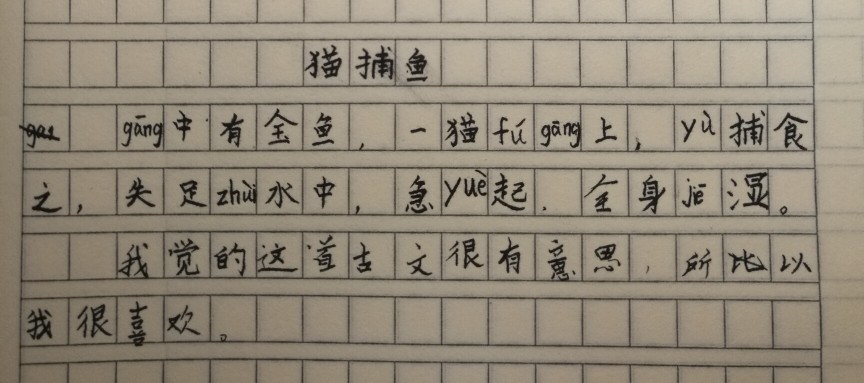 猫捕鱼
gāng中有金鱼，一猫fú gāng上，yù捕食
之，失足zhuì水中，急yuè起．全身jiē湿。
我觉的这首古文很有意思，所比以
我很喜欢。